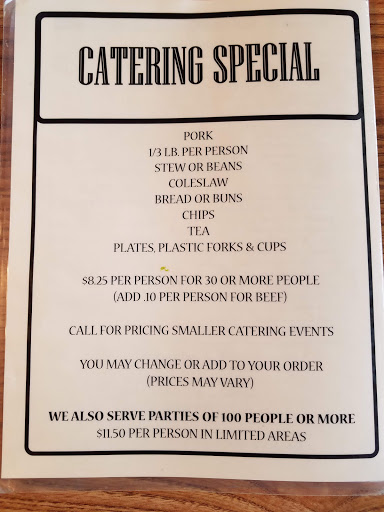 CATERING SPECIAL
PORK
1/3 LB. PER PERSON
STEW OR BEANS
COLESLAW
BREAD OR BUNS
CHIPS
TEA
PLATES, PLASTIC FORKS & CUPS
$8.25 PER PERSON FOR 30 OR MORE PEOPLE
(ADD .10 PER PERSON FOR BEEF)
CALL FOR PRICING SMALLER CATERING EVENTS
YOU MAY CHANGE OR ADD TO YOUR ORDER
(PRICES MAY VARY)
WE ALSO SERVE PARTIES OF 100 PEOPLE OR MORE
$11.50 PER PERSON IN LIMITED AREAS